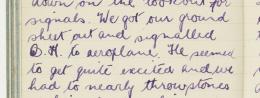 down on the lookout for
signals. We got our ground
sheet out and signalled
B.H. to aeroplane. He seemed
to get quite excited and we
had to nearly throw stones